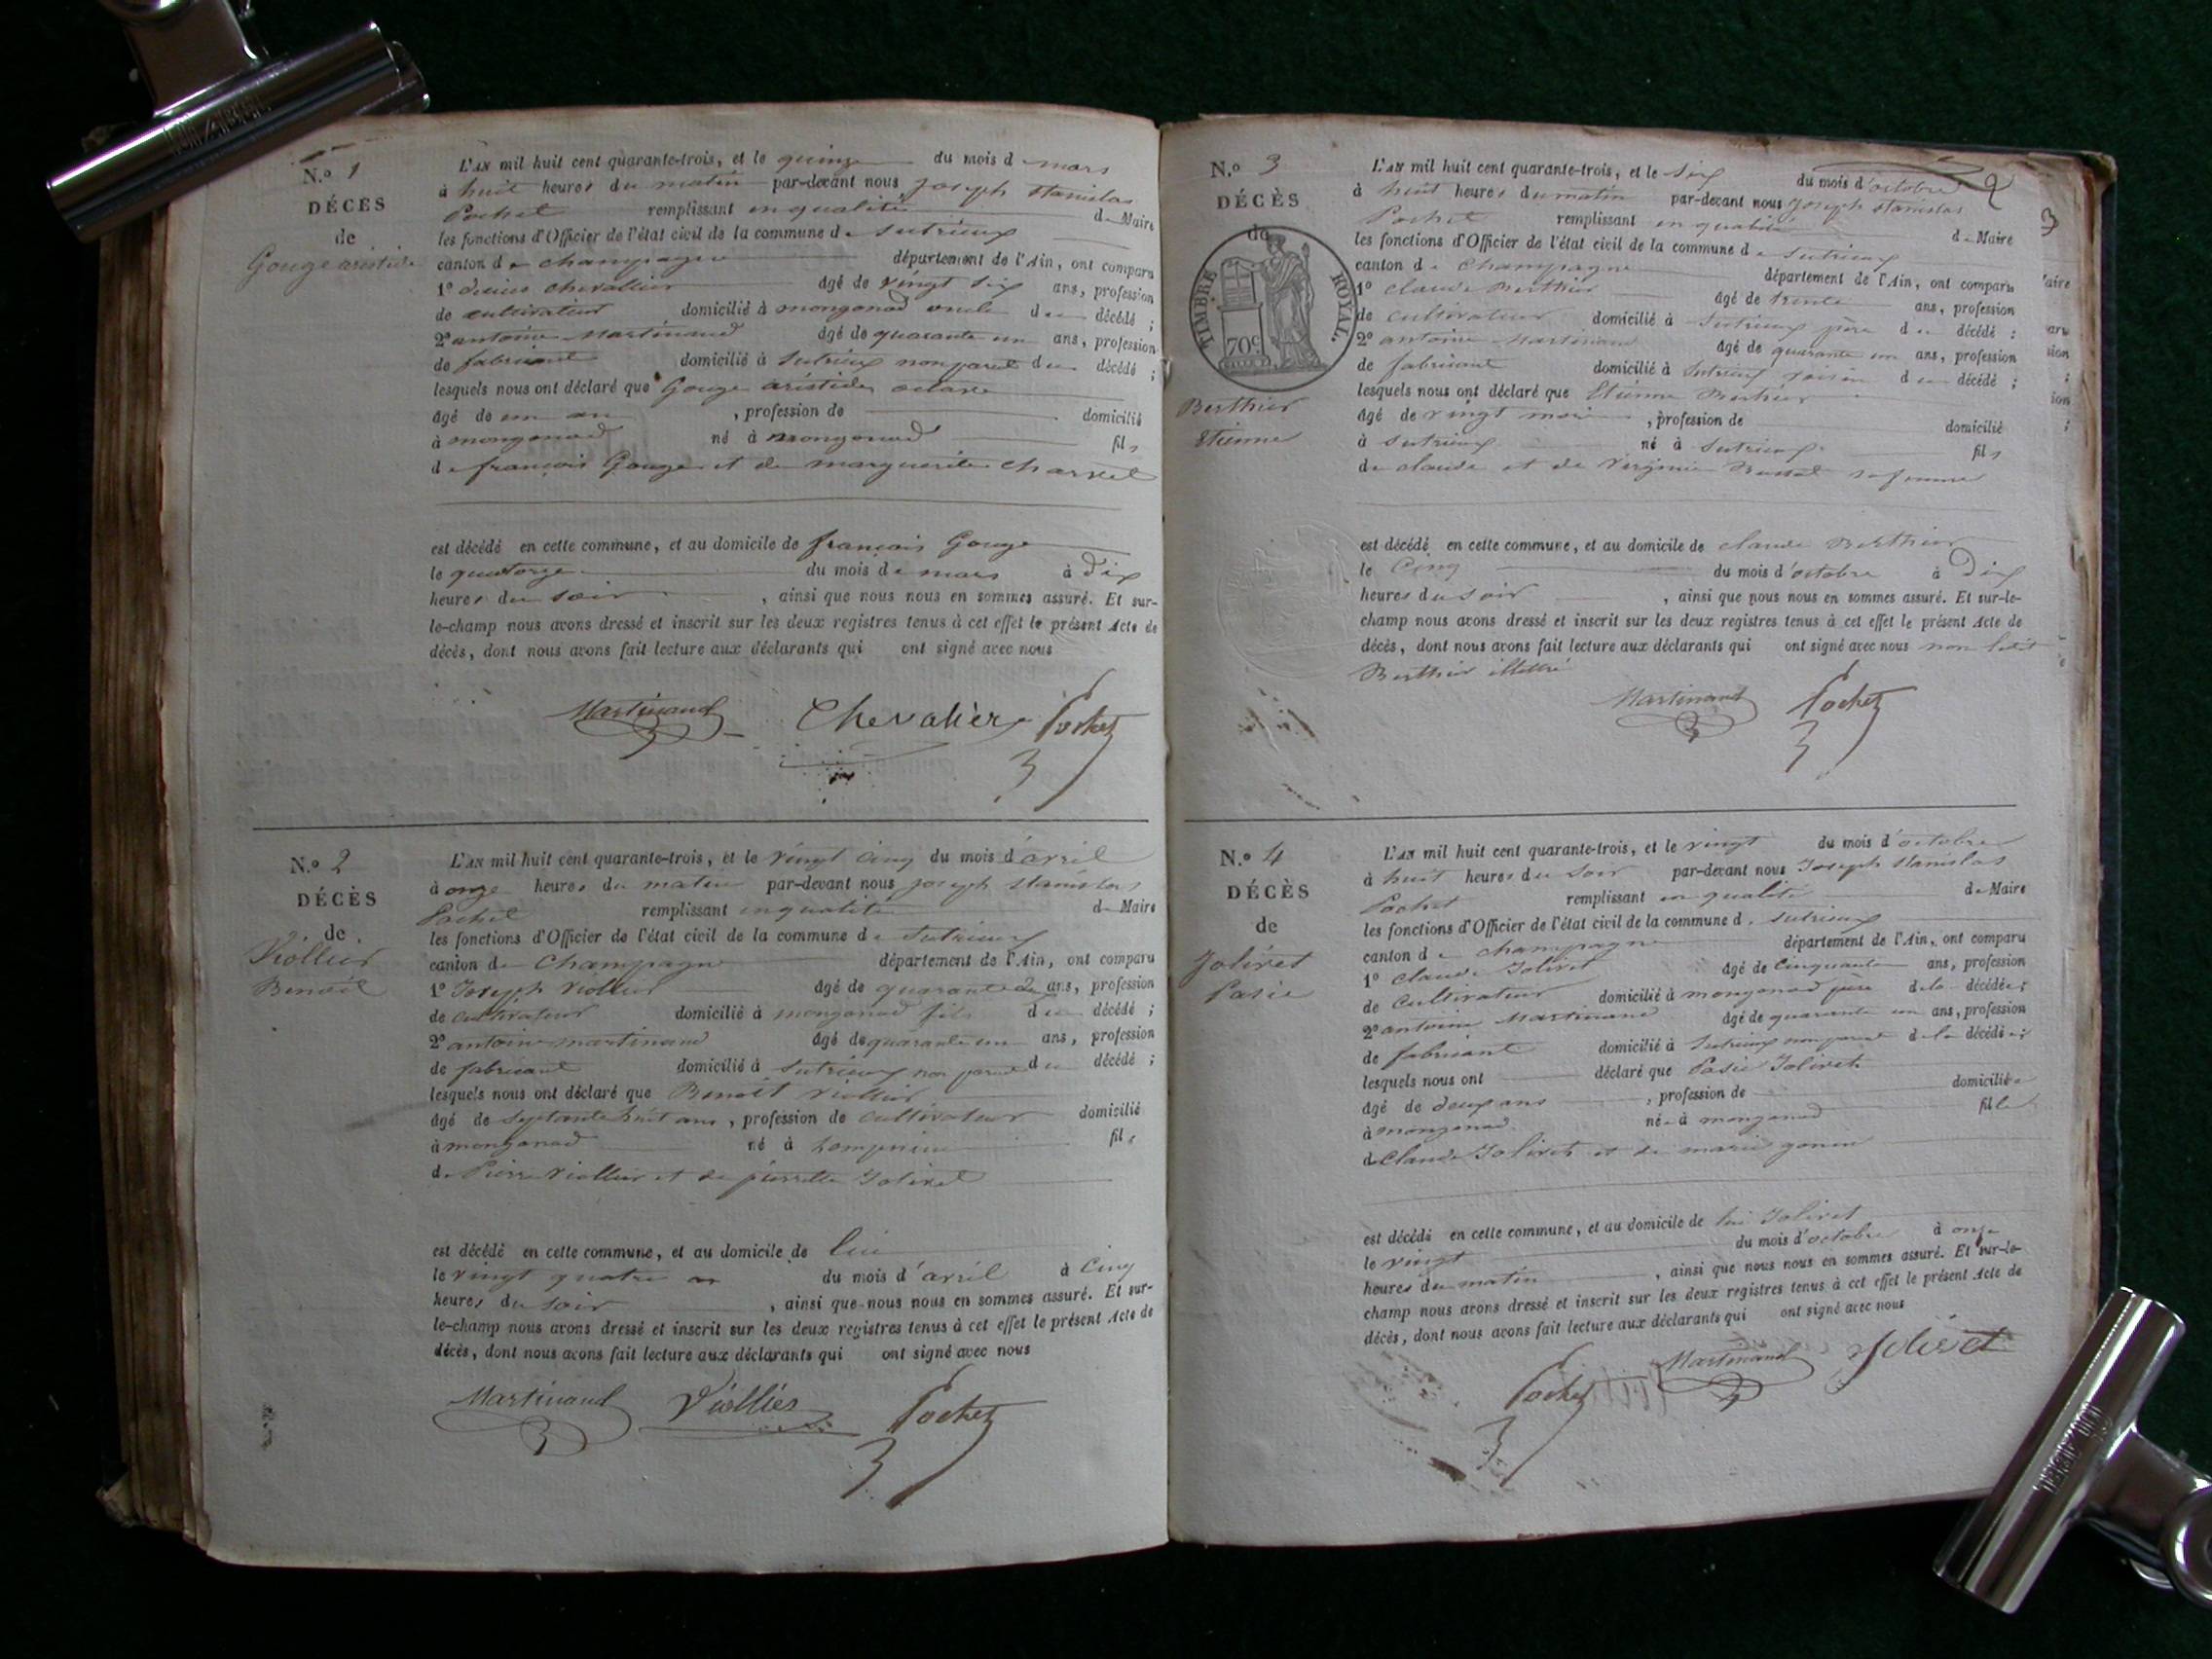 N.º 1
DÉCÈS
de
Gouge aristide
L'AN mil huit cent quarante-trois, et le quinze du mois de mars
à huit heures du matin par-devant nous joseph stanislas
Pochet remplissant en qualité de Maire
les fonctions d'Officier de l'état civil de la commune de Sutrieux
canton de Champagne département de l'Ain, ont comparu
1º chevallier âgé de vingt six ans, profession
de cultivateur domicilié à mongonod oncle du décédé ;
2º antoine Martinand âgé de quarante un ans, profession
de fabricant domicilié à Sutrieux non parent du décédé ;
lesquels nous ont déclaré que Gouge aristide octave
âgé de un an , profession de domicilié
à mongonod né à mongonod fils
de françois Gouge et de marguerite Charvet
est décédé en cette commune, et au domicile de françois Gouge
le quatorze du mois de mars à Dix
heures du soir , ainsi que nous nous en sommes assuré. Et sur-
le-champ nous avons dressé et inscrit sur les deux registres tenus à cet effet le présent Acte de
décès, dont nous avons fait lecture aux déclarants qui ont signé avec nous
Martinand Chevalier Pochet
N.º 2
DÉCÈS
de
Viollier
Benoit
L'AN mil huit cent quarante-trois, et le vingt cinq du mois d'avril
à onze heures du matin par-devant nous joseph stanislas
Pochet remplissant en qualité de Maire
les fonctions d'Officier de l'état civil de la commune de Sutrieux
canton de Champagne département de l'Ain, ont comparu
1º Joseph Viollier âgé de quarante ans, profession
de cultivateur domicilié à mongonod fils du décédé ;
2º antoine martinand âgé de quarante un ans, profession
de fabricant domicilié à Sutrieux non parent du décédé ;
lesquels nous ont déclaré que Benoit Viollier
âgé de septante huit ans , profession de cultivateur domicilié
à mongonod né à fils
de Pierre Viollier et de pierrette Jolivet
est décédé en cette commune, et au domicile de lui
le vingt quatre du mois d'avril à Cinq
heures du soir , ainsi que nous nous en sommes assuré. Et sur-
le-champ nous avons dressé et inscrit sur les deux registres tenus à cet effet le présent Acte de
décès, dont nous avons fait lecture aux déclarants qui ont signé avec nous
Martinand Viollies Pochet
2
3
N.º 3
DÉCÈS
de
TIMBRE ROYAL.
70c
Berthier
Etienne
L'AN mil huit cent quarante-trois, et le six du mois d'octobre
à huit heures du matin par-devant nous joseph stanislas
Pochet remplissant en qualité de Maire
les fonctions d'Officier de l'état civil de la commune de Sutrieux
canton de Champagne département de l'Ain, ont comparu
1º claude Berthier âgé de trente ans, profession
de cultivateur domicilié à Sutrieux père du décédé ;
2º antoine Martinand âgé de quarante un ans, profession
de fabricant domicilié à Sutrieux voisin du décédé ;
lesquels nous ont déclaré que Etienne Berthier
âgé de vingt mois , profession de domicilié
à Sutrieux né à Sutrieux fils
de claude et de Virginie sa femme
est décédé en cette commune, et au domicile de claude Berthier
le Cinq du mois d'octobre à Dix
heures du soir , ainsi que nous nous en sommes assuré. Et sur-le-
champ nous avons dressé et inscrit sur les deux registres tenus à cet effet le présent Acte de
décès, dont nous avons fait lecture aux déclarants qui ont signé avec nous non ledit
Berthier illettré
Martinand Pochet
N.º 4
DÉCÈS
de
Jolivet
Pasie
L'AN mil huit cent quarante-trois, et le vingt du mois d'octobre
à huit heures du soir par-devant nous Joseph stanislas
Pochet remplissant en qualité de Maire
les fonctions d'Officier de l'état civil de la commune de Sutrieux
canton de champagne département de l'Ain, ont comparu
1º Claude Jolivet âgé de Cinquante ans, profession
de Cultivateur domicilié à mongonod père de la décédée ;
2º antoine Martinand âgé de quarante un ans, profession
de fabricant domicilié à Sutrieux non parent de la décédée ;
lesquels nous ont déclaré que Pasie Jolivet
âgé de deux ans , profession de domiciliée
à mongonod née à mongonod fille
de Claude Jolivet et de marie gonin
est décédé en cette commune, et au domicile de lui Jolivet
le vingt du mois d'octobre à onze
heures du matin , ainsi que nous nous en sommes assuré. Et sur-le-
champ nous avons dressé et inscrit sur les deux registres tenus à cet effet le présent Acte de
décès, dont nous avons fait lecture aux déclarants qui ont signé avec nous
Pochet Martinand Jolivet